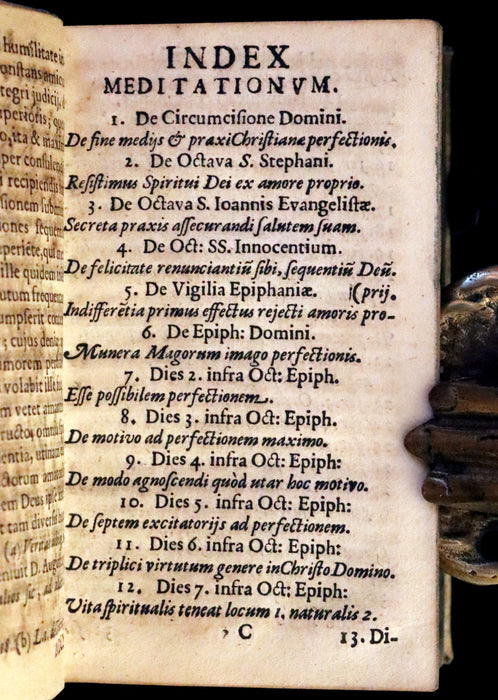 humilitate in
onstans amic
tegri judicij,
uperioris; qu
per consulend
i recipiendis
ille quidem in
utum frequen
umpserit con
; cujus denic
amorem per
volabit ille
em vetet amar
entia, utinam
em Deus
INDEX
MEDITATIONVM.
1. De Circumcisione Domini.
De fine medijs & praxi Christianæ perfectionis.
2. De Octava S. Stephani.
Resistimus Spiritui Dei ex amore proprio.
3. De Octava S. Ioannis Evangelistæ.
Secreta praxis assecurandi salutem suam.
4. De Oct: SS. Innocentium.
De felicitate renunciantiũ sibi, sequentiũ Deũ.
5. De Vigilia Epiphaniæ. (prij.
Indifferẽtia primus effectus rejecti amoris pro-
6. De Epiph: Domini.
Munera Magorum imago perfectionis.
7. Dies 2. infra Oct: Epiph.
Esse possibilem perfectionem.
8. Dies 3. infra Oct: Epiph.
De motivo ad perfectionem maximo.
9. Dies 4. infra Oct: Epiph:
De modo agnoscendi quòd utar hoc motivo.
10. Dies 5. infra Oct: Epiph:
De septem excitatorijs ad perfectionem.
11. Dies 6. infra Oct: Epiph:
De triplici virtutum genere in Christo Domino.
12. Dies 7. infra Oct: Epiph:
Vita spiritualis teneat locum 1. naturalis 2.
C 13. Di-